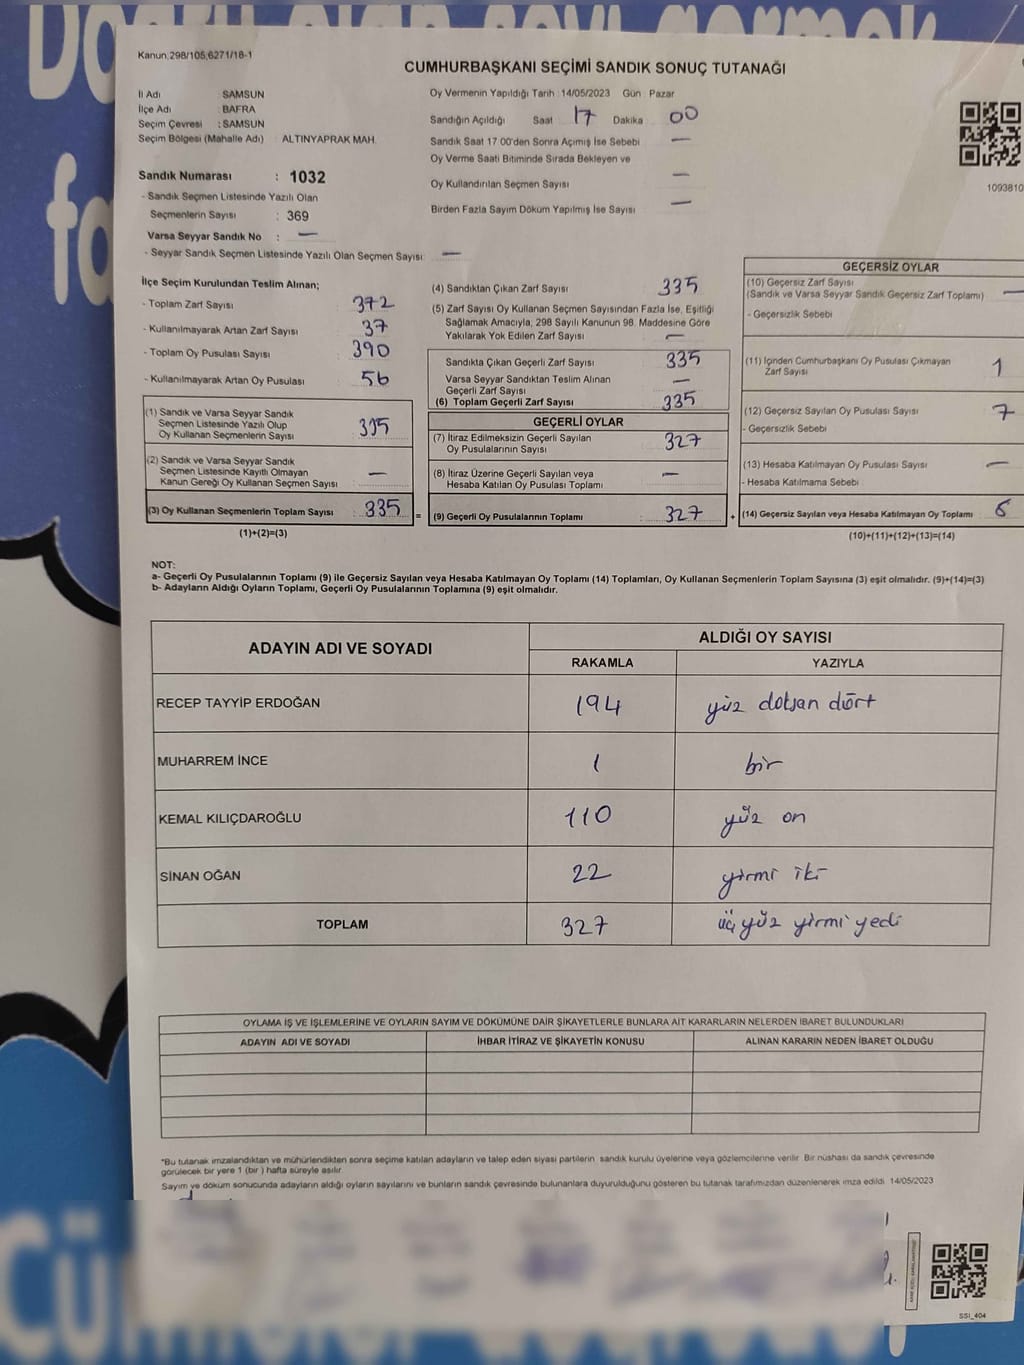 Kanun;298/105;6271/18-1
CUMHURBAŞKANI SEÇİMİ SANDIK SONUÇ TUTANAĞI
İl Adı : SAMSUN
İlçe Adı : BAFRA
Seçim Çevresi : SAMSUN
Seçim Bölgesi (Mahalle Adı) : ALTINYAPRAK MAH.
Sandık Numarası : 1032
- Sandık Seçmen Listesinde Yazılı Olan
Seçmenlerin Sayısı : 369
Varsa Seyyar Sandık No : —
- Seyyar Sandık Seçmen Listesinde Yazılı Olan Seçmen Sayısı: —
Oy Vermenin Yapıldığı Tarih :14/05/2023 Gün Pazar
Sandığın Açıldığı Saat 17 Dakika 00
Sandık Saat 17:00'den Sonra Açımış İse Sebebi —
Oy Verme Saati Bitiminde Sırada Bekleyen ve
Oy Kullandırılan Seçmen Sayısı —
Birden Fazla Sayım Döküm Yapılmış İse Sayısı —
1093810
İlçe Seçim Kurulundan Teslim Alınan;
- Toplam Zarf Sayısı : 372
- Kullanılmayarak Artan Zarf Sayısı : 37
- Toplam Oy Pusulası Sayısı : 390
- Kullanılmayarak Artan Oy Pusulası : 56
(1) Sandık ve Varsa Seyyar Sandık
Seçmen Listesinde Yazılı Olup
Oy Kullanan Seçmenlerin Sayısı : 335
(2) Sandık ve Varsa Seyyar Sandık
Seçmen Listesinde Kayıtlı Olmayan
Kanun Gereği Oy Kullanan Seçmen Sayısı : —
(3) Oy Kullanan Seçmenlerin Toplam Sayısı : 335 =
(1)+(2)=(3)
(4) Sandıktan Çıkan Zarf Sayısı : 335
(5) Zarf Sayısı Oy Kullanan Seçmen Sayısından Fazla İse, Eşitliği
Sağlamak Amacıyla, 298 Sayılı Kanunun 98. Maddesine Göre
Yakılarak Yok Edilen Zarf Sayısı : —
Sandıkta Çıkan Geçerli Zarf Sayısı : 335
Varsa Seyyar Sandıktan Teslim Alınan
Geçerli Zarf Sayısı : —
(6) Toplam Geçerli Zarf Sayısı : 335
GEÇERLİ OYLAR
(7) İtiraz Edilmeksizin Geçerli Sayılan
Oy Pusulalarının Sayısı : 327
(8) İtiraz Üzerine Geçerli Sayılan veya
Hesaba Katılan Oy Pusulası Toplamı : —
(9) Geçerli Oy Pusulalarının Toplamı : 327 +
GEÇERSİZ OYLAR
(10) Geçersiz Zarf Sayısı
(Sandık ve Varsa Seyyar Sandık Geçersiz Zarf Toplamı) : —
- Geçersizlik Sebebi
(11) İçinden Cumhurbaşkanı Oy Pusulası Çıkmayan
Zarf Sayısı : 1
(12) Geçersiz Sayılan Oy Pusulası Sayısı : 7
- Geçersizlik Sebebi
(13) Hesaba Katılmayan Oy Pusulası Sayısı : —
- Hesaba Katılmama Sebebi
(14) Geçersiz Sayılan veya Hesaba Katılmayan Oy Toplamı :
(10)+(11)+(12)+(13)=(14)
NOT:
a- Geçerli Oy Pusulalarının Toplamı (9) ile Geçersiz Sayılan veya Hesaba Katılmayan Oy Toplamı (14) Toplamları, Oy Kullanan Seçmenlerin Toplam Sayısına (3) eşit olmalıdır. (9)+(14)=(3)
b- Adayların Aldığı Oyların Toplamı, Geçerli Oy Pusulalarının Toplamına (9) eşit olmalıdır.
ADAYIN ADI VE SOYADI ALDIĞI OY SAYISI
RAKAMLA YAZIYLA
RECEP TAYYİP ERDOĞAN 194 yüz doksan dört
MUHARREM İNCE 1 bir
KEMAL KILIÇDAROĞLU 110 yüz on
SİNAN OĞAN 22 yirmi iki
TOPLAM 327 üç yüz yirmi yedi
OYLAMA İŞ VE İŞLEMLERİNE VE OYLARIN SAYIM VE DÖKÜMÜNE DAİR ŞİKAYETLERLE BUNLARA AİT KARARLARIN NELERDEN İBARET BULUNDUKLARI
ADAYIN ADI VE SOYADI İHBAR İTİRAZ VE ŞİKAYETİN KONUSU ALINAN KARARIN NEDEN İBARET OLDUĞU
*Bu tutanak imzalandıktan ve mühürlendikten sonra seçime katılan adayların ve talep eden siyasi partilerin sandık kurulu üyelerine veya gözlemcilerine verilir. Bir nüshası da sandık çevresinde
görülecek bir yere 1 (bir ) hafta süreyle asılır.
Sayım ve döküm sonucunda adayların aldığı oyların sayılarını ve bunların sandık çevresinde bulunanlara duyurulduğunu gösteren bu tutanak tarafımızdan düzenlenerek imza edildi. 14/05/2023
SSI_404